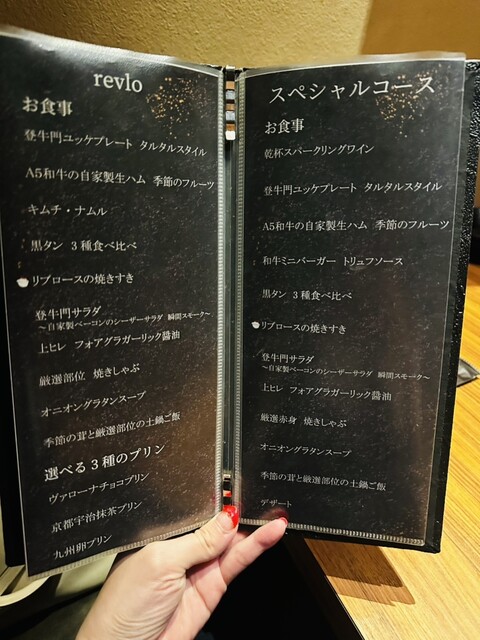 revlo
お食事
登牛門ユッケプレート タルタルスタイル
A5和牛の自家製生ハム 季節のフルーツ
キムチ・ナムル
黒タン 3種食べ比べ
リブロースの焼きすき
登牛門サラダ
～自家製ベーコンのシーザーサラダ 瞬間スモーク～
上ヒレ フォアグラガーリック醤油
厳選部位 焼きしゃぶ
オニオングラタンスープ
季節の茸と厳選部位の土鍋ご飯
選べる3種のプリン
ヴァローナチョコプリン
京都宇治抹茶プリン
九州卵プリン
スペシャルコース
お食事
乾杯スパークリングワイン
登牛門ユッケプレート タルタルスタイル
A5和牛の自家製生ハム 季節のフルーツ
和牛ミニバーガー トリュフソース
黒タン 3種食べ比べ
リブロースの焼きすき
登牛門サラダ
～自家製ベーコンのシーザーサラダ 瞬間スモーク～
上ヒレ フォアグラガーリック醤油
厳選赤身 焼きしゃぶ
オニオングラタンスープ
季節の茸と厳選部位の土鍋ご飯
デザート